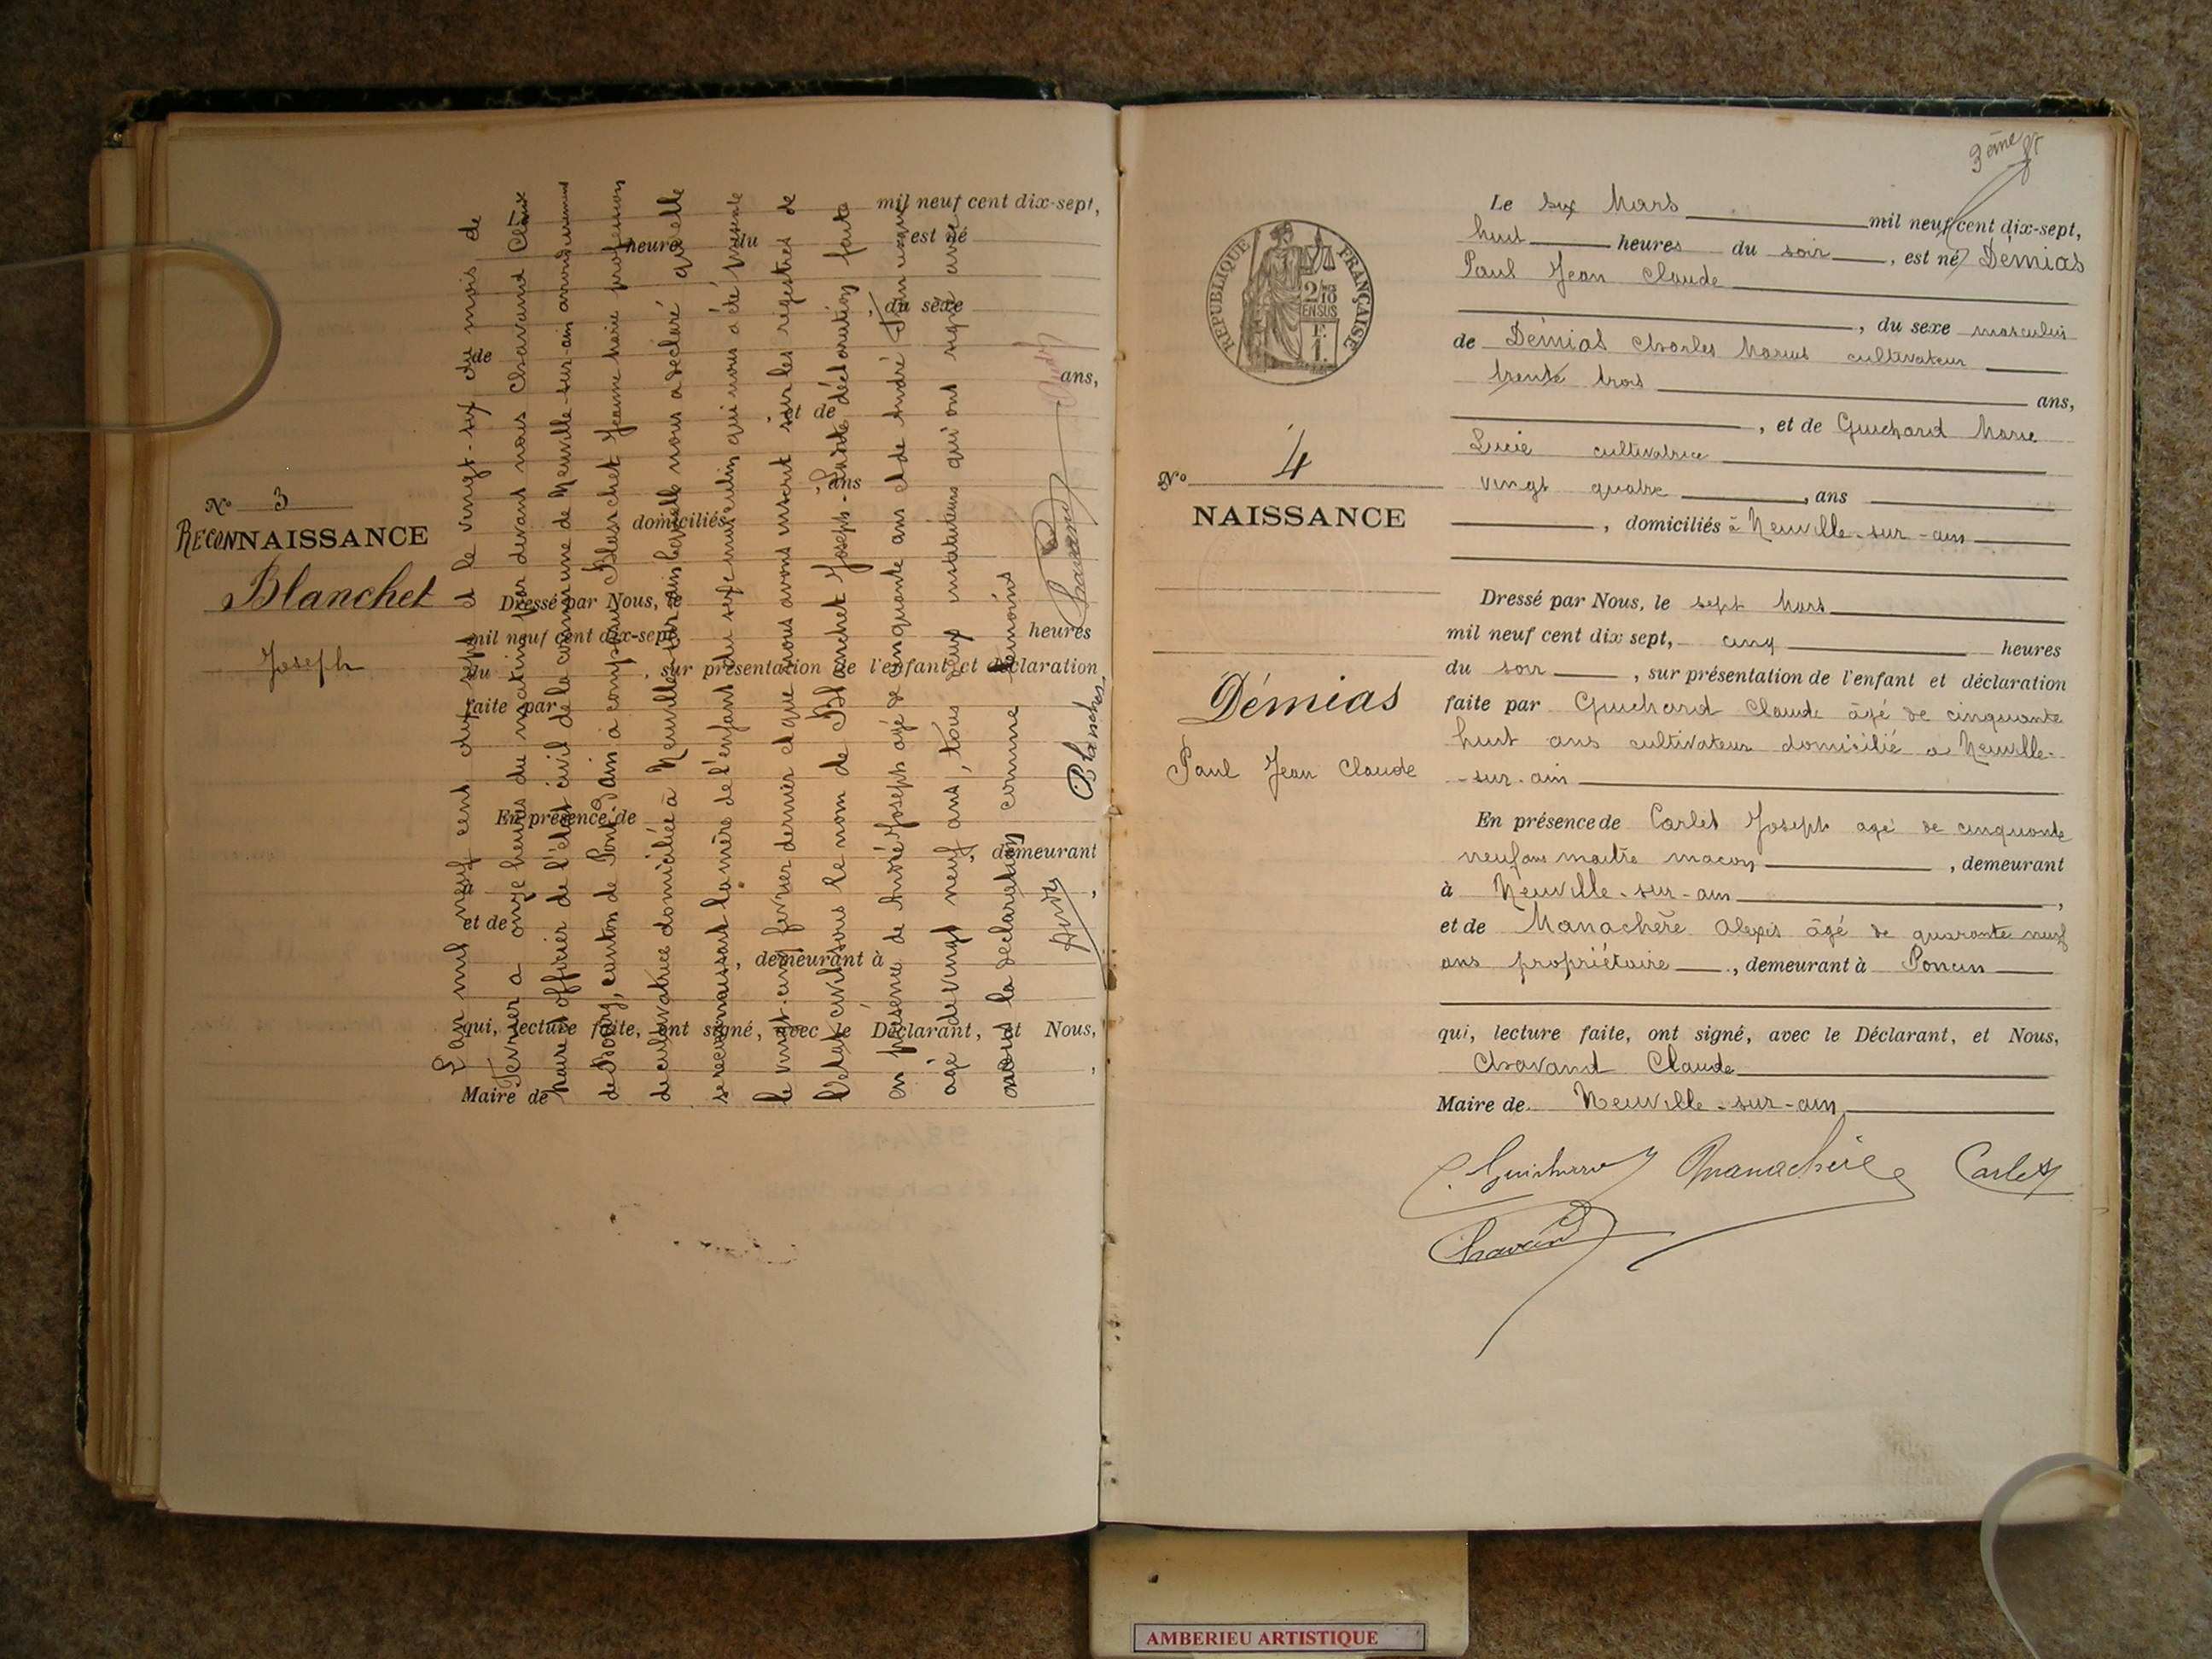 mil neuf cent dix-sept,
heure du est né
, du sexe
de
ans,
et de
, ans
domiciliés
N° 3
RECONNAISSANCE
Blanchet
Joseph
Dressé par Nous, le
mil neuf cent dix-sept
heures
du , sur présentation de l'enfant et déclaration
faite par
En présence de
, demeurant
à ,
et de
, demeurant à
qui, lecture faite, ont signé, avec le Déclarant, et Nous,
,
Maire de
L'an mil neuf cent dix sept et le vingt-six du mois de
Février à onze heures du matin par devant nous Chavand Claude
maire officier de l'état civil de la commune de Neuville-sur-ain arrondissement
de Bourg, canton de Pont d'ain a comparu Blanchet Jeanne Marie profession
de cultivatrice domiciliée à Neuville-sur-ain laquelle nous a déclaré qu'elle
se reconnaissait la mère de l'enfant du sexe masculin qui nous a été présenté
le vingt-cinq février dernier et que nous avons inscrit sur les registres de
l'état civil sous le nom de Blanchet Joseph. Ladite déclaration faite
en présence de André Joseph âgé de cinquante ans et de André
âgé de vingt neuf ans, tous deux instituteurs qui ont signé avec
nous la déclaration comme témoins
Blanchet
André
Chavand
3ème
REPUBLIQUE FRANÇAISE
2/10
EN SUS
F.
1.
Le six Mars mil neuf cent dix-sept,
huit heures du soir , est né Démias
Paul Jean Claude
, du sexe masculin
de Démias Charles Marius cultivateur
trente trois
ans,
, et de Guichard Marie
Lucie cultivatrice
vingt quatre , ans
, domiciliés à Neuville-sur-ain
N° 4
NAISSANCE
Démias
Paul Jean Claude
Dressé par Nous, le sept Mars
mil neuf cent dix sept, cinq heures
du soir , sur présentation de l'enfant et déclaration
faite par Guichard Claude âgé de cinquante
huit ans cultivateur domicilié a Neuville-
-sur-ain
En présence de Carlet Joseph agé de cinquante
neuf ans maître maçon , demeurant
à Neuville-sur-ain ,
et de Manachère Alexis âgé de quarante neuf
ans propriétaire , demeurant à Poncin
qui, lecture faite, ont signé, avec le Déclarant, et Nous,
Chavand Claude
Maire de Neuville-sur-ain
C. Guichard Manachère Carlet
Chavand
AMBERIEU ARTISTIQUE